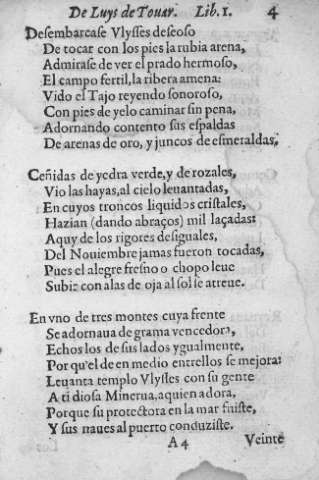 De Luys de Touar. Lib. 1. 4
Desembarcase Vlysses deseoso
De tocar con los pies la rubia arena,
Admirase de ver el prado hermoso,
El campo fertil, la ribera amena:
Vido el Tajo reyendo sonoroso,
Con pies de yelo caminar sin pena,
Adornando contento sus espaldas
De arenas de oro, y juncos de esmeraldas,
Ceñidas de yedra verde, y de rozales,
Vio las hayas, al cielo leuantadas,
En cuyos troncos liquidos cristales,
Hazian (dando abraços) mil laçadas:
Aquy de los rigores desiguales,
Del Nouiembre jamas fueron tocadas,
Pues el alegre fresno o chopo leue
Subir con alas de oja al sol se atreue.
En vno de tres montes cuya frente
Se adornaua de grama vencedora,
Echos los de sus lados ygualmente,
Porque el de en medio entrellos se mejora:
Leuanta templo Vlysses con su gente
A ti diosa Minerua, a quien adora,
Porque su protectora en la mar fuiste,
Y sus naues al puerto conduziste.
A4 Veinte